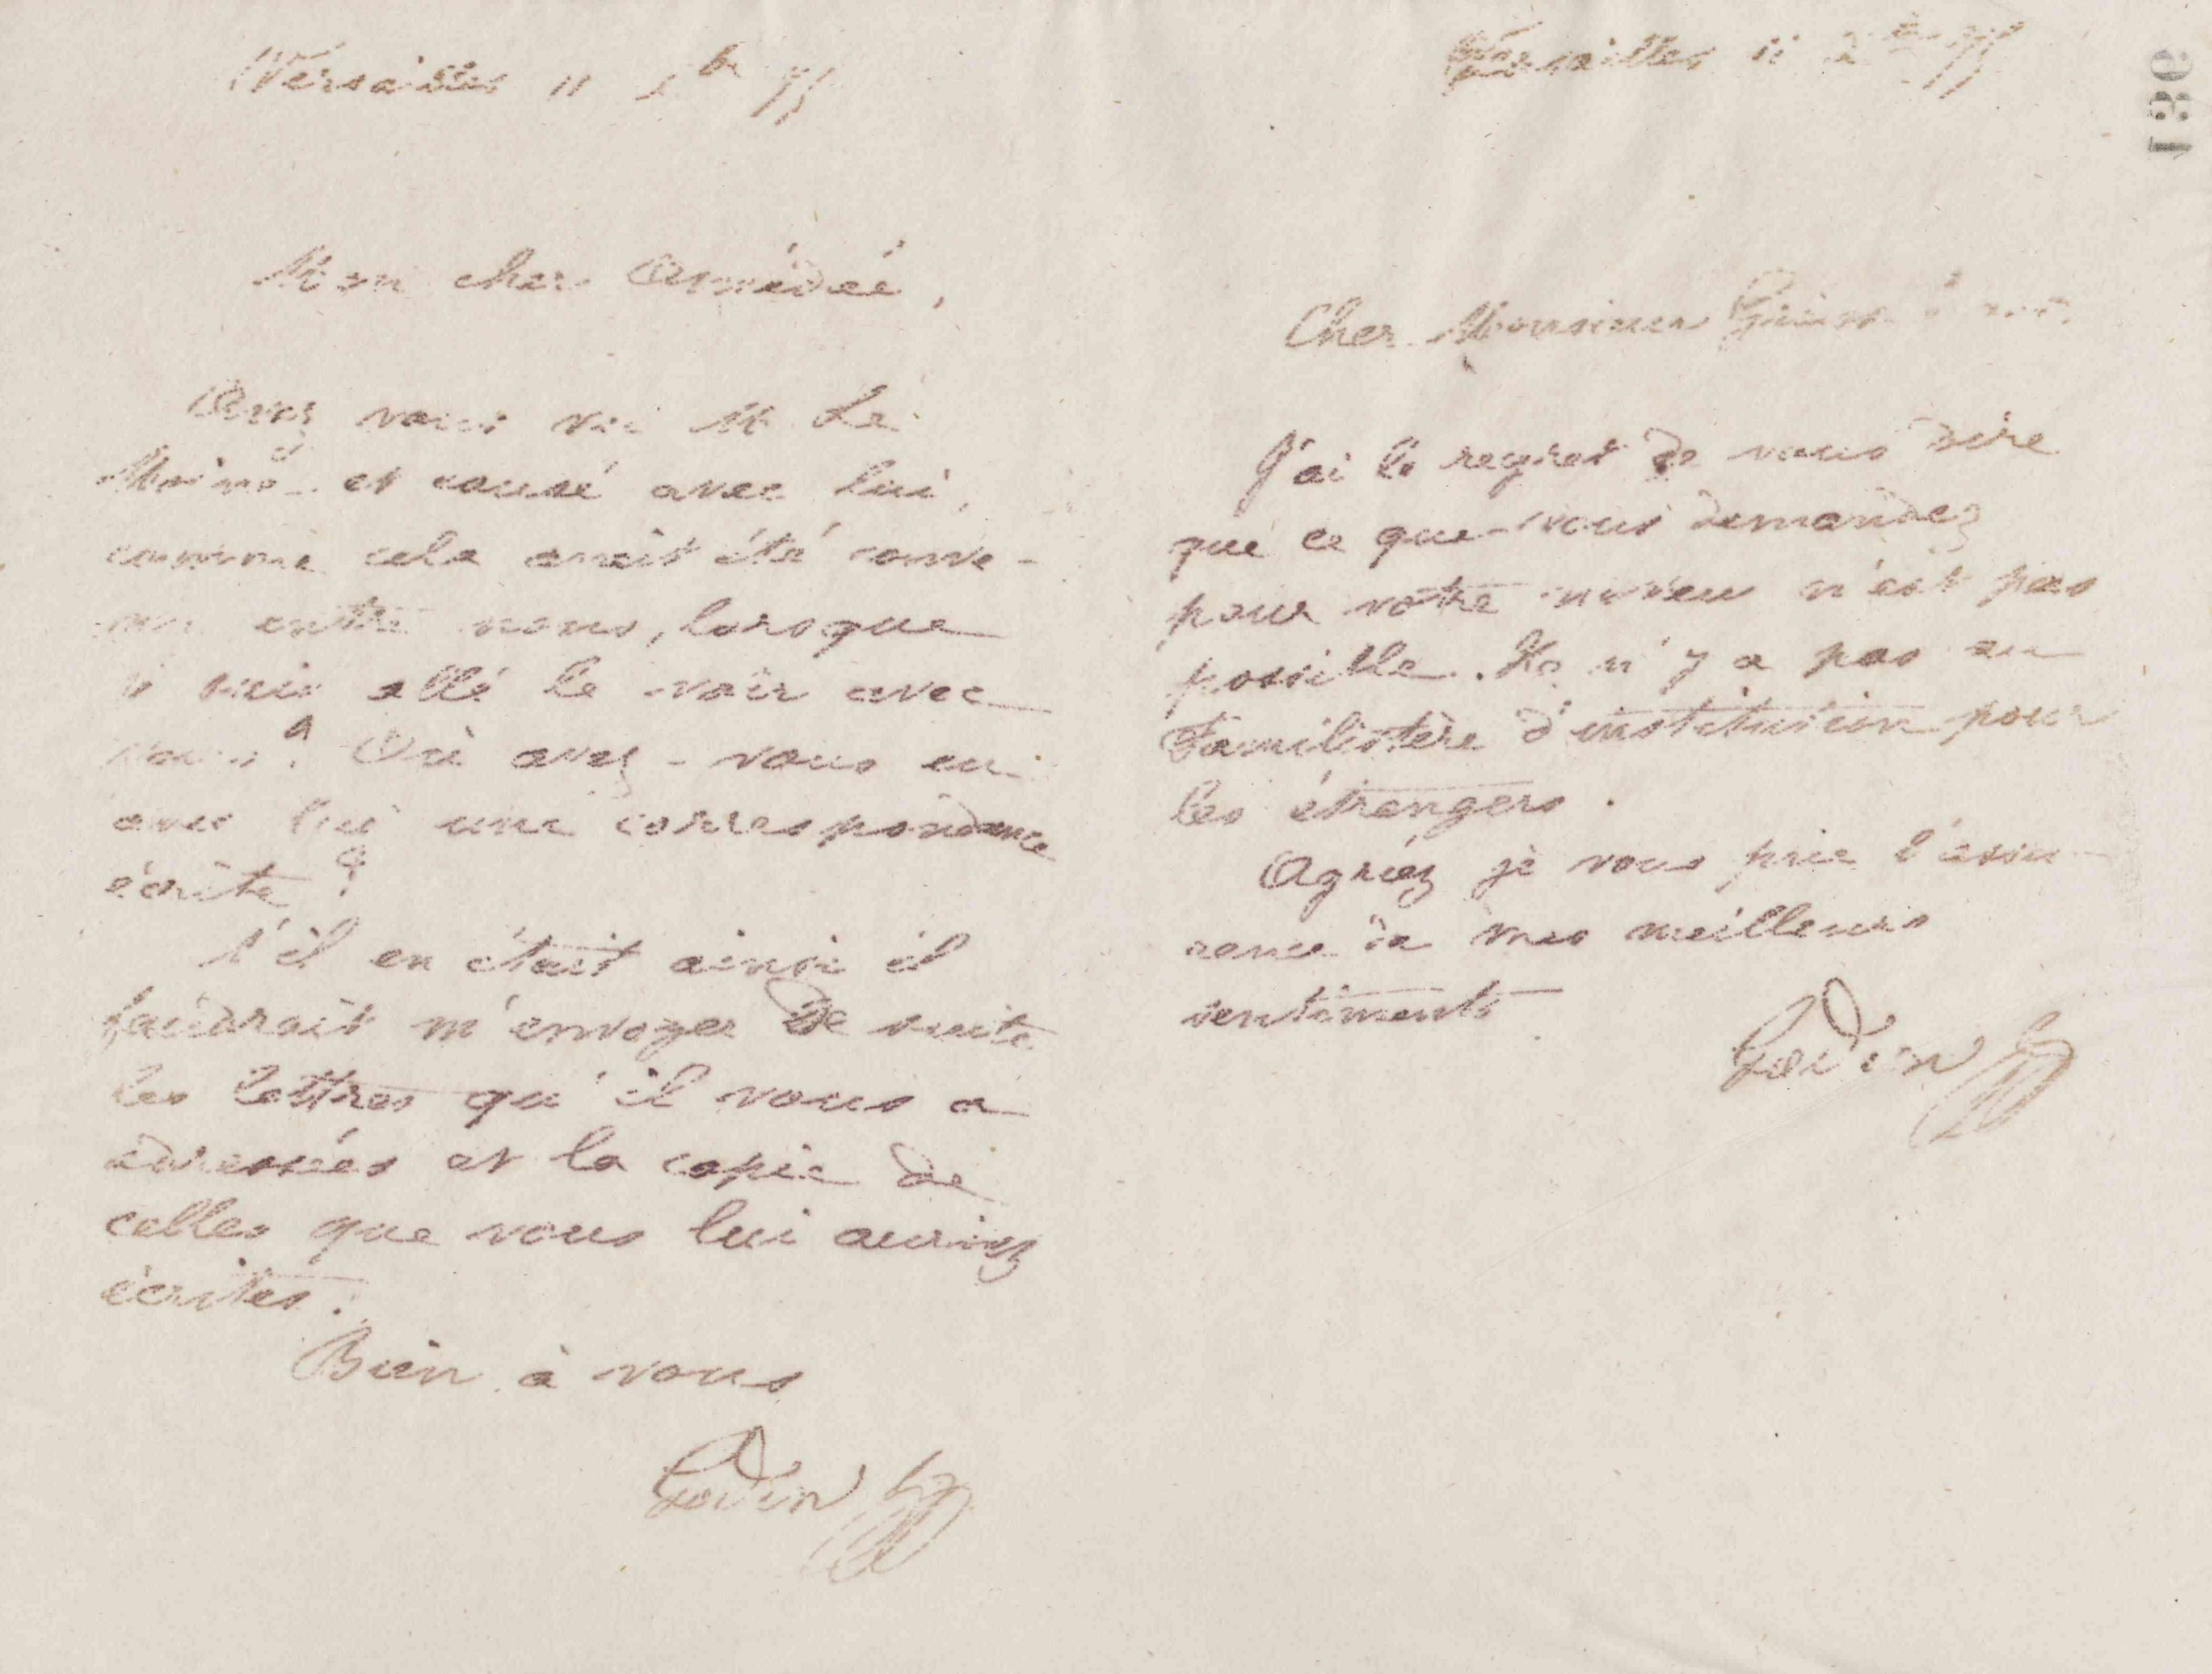 Versailles 11 Xbre 75
Mon cher Amédée,
Avez vous vu M. Le
Moine et causé avec lui,
comme cela avait été conve-
nu entre nous, lorsque
je suis allé le voir avec
vous ? Où avez-vous eu
avec lui une correspondance
écrite ?
S'il en était ainsi il
faudrait m'envoyer de suite
les lettres qu'il vous a
adressées et la copie de
celles que vous lui auriez
écrites.
Bien à vous
Godin
Versailles 11 Xbre 75
186
Cher Monsieur
J'ai le regret de vous dire
que ce que vous demandez
pour votre neveu n'est pas
possible. Il n'y a pas au
Familistère d'institution pour
les étrangers.
Agréez je vous prie l'assu-
rance de mes meilleurs
sentiments
Godin